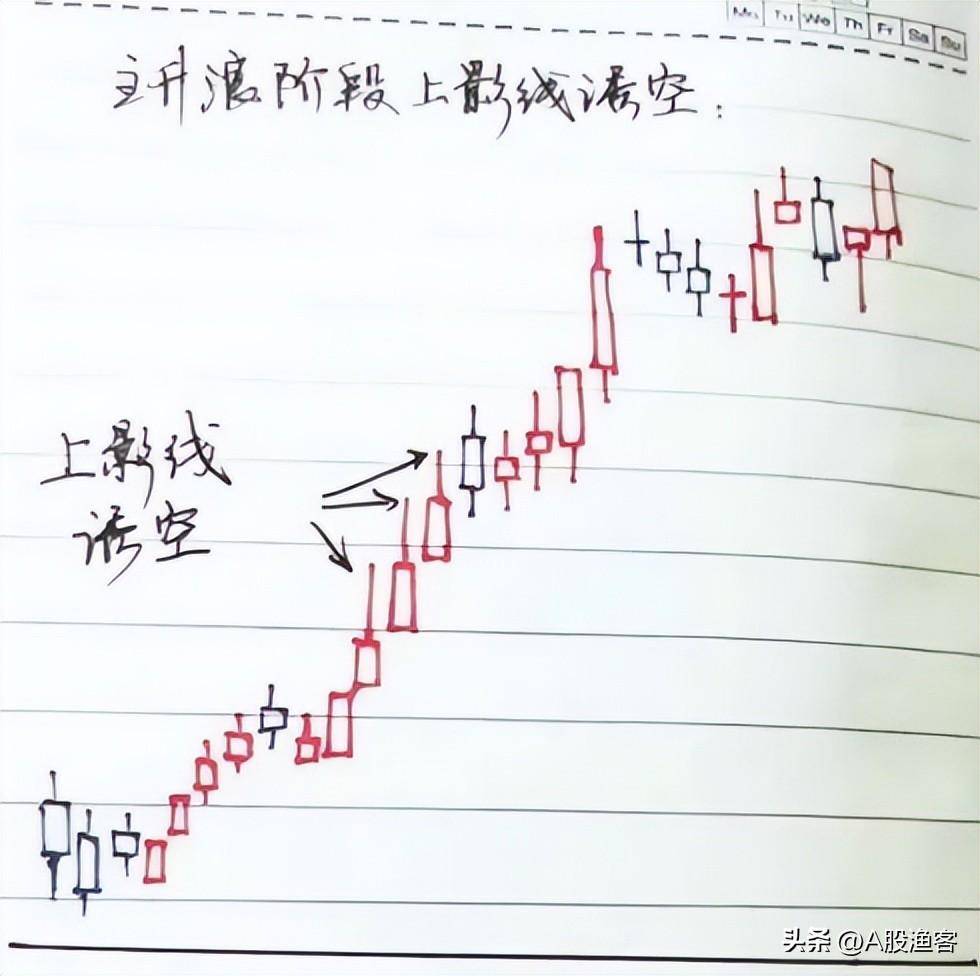 Mo Tu We Th Fr Sa Su
主升浪阶段上影线诱空：
上影线
诱空
头条 @A股渔客